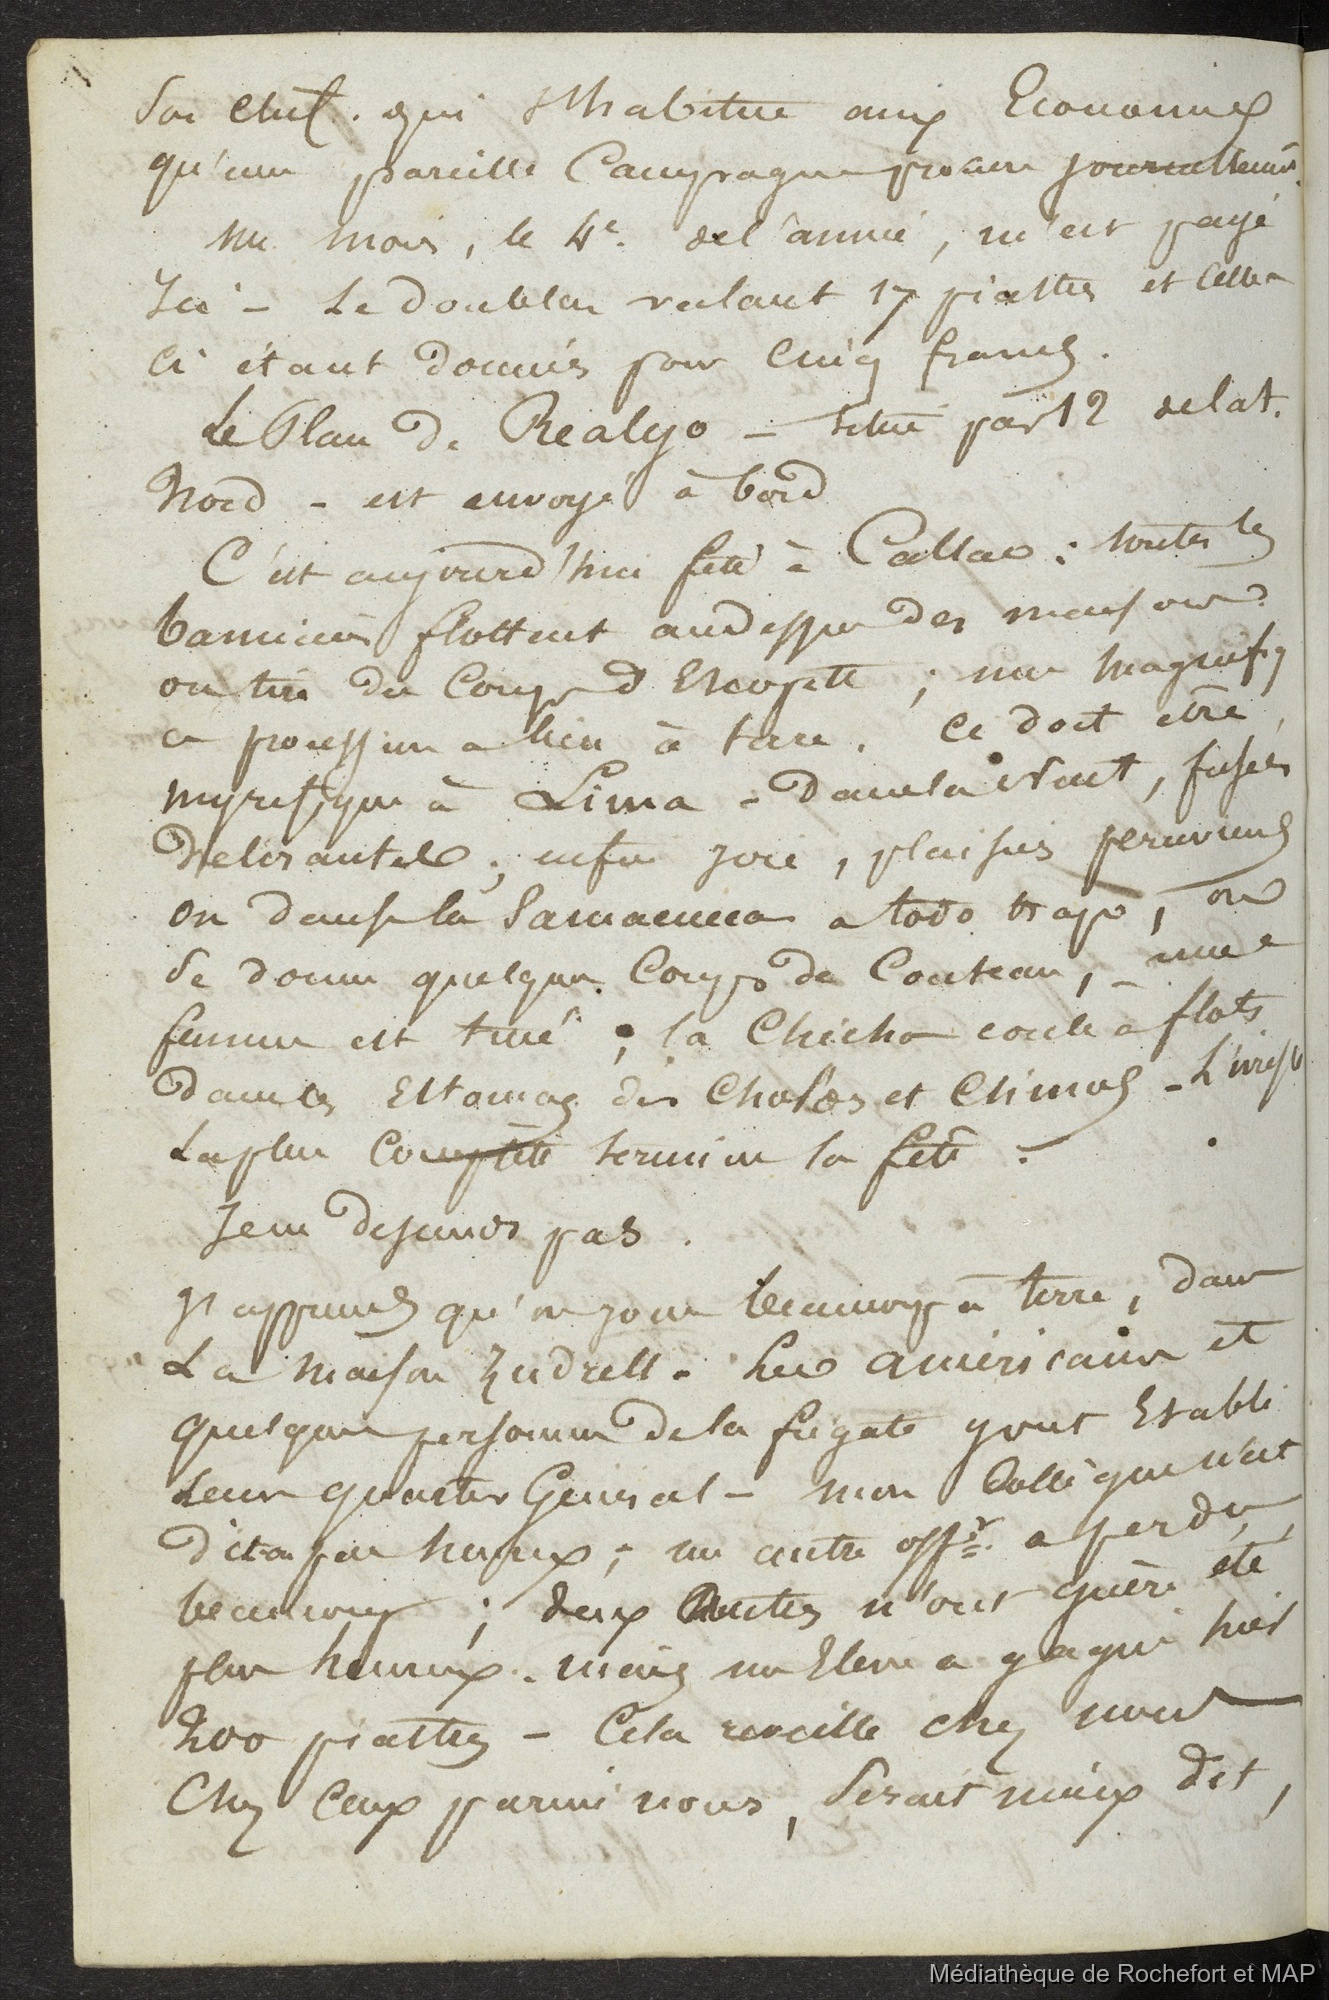 son chef. qui s'habitue aux Economies
qu'une pareille Campagne procure journellement.
un mois, le 4e. de l'année, m'est payé
Ici - Le doublon valant 17 piastres et celles
ci étant données pour Cinq francs.
Le Plan de Realejo - situé par 12 de lat.
Nord - est envoyé à bord
C'est aujourd'hui fête à Callao : toutes les
bannières flottent audessus des maisons
on tire des Coups d'Escopette ; une magnifiq
ue procession a lieu à terre. Ce doit être
myrifique à Lima - dans la Nuit, fusées
; enfin joie, plaisirs peruviens
on danse la Samacueca a todo trapo, on
se donne quelques Coups de Couteau, - une
femme est tuée ; la Chicha coule a flots
dans les Estomacs des Cholos et Chinas - L'ivresse
la plus Complète termine la fête.
Je ne descends pas.
J'apprends qu'on joue beaucoup à terre, dans
La maison . Les américains et
quelques personnes de la frégate y ont Etabli
Leur quartier Général - mon Collègue n'est
dit on pas heureux ; un autre offr. a perdu
beaucoup ; deux Autres n'ont guère été
plus heureux. mais un Elève a gagné hier
200 piastres - Cela reveille chez nous
Chez Ceux parmi nous, serait mieux dit,
Médiathèque de Rochefort et MAP